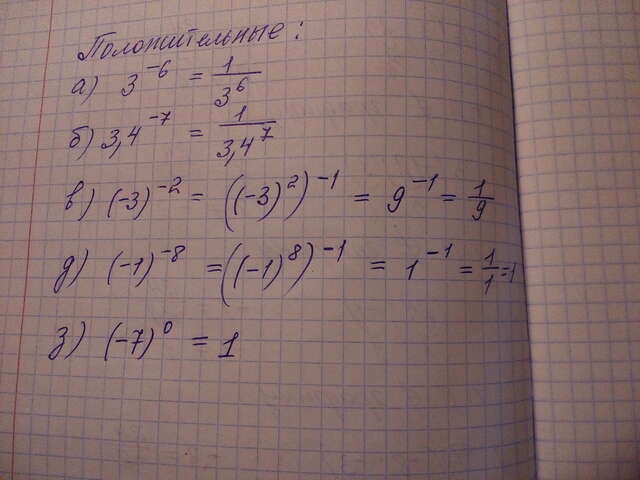 Положительные:
а) 3^-6 = 1/3^6
б) 3,4^-7 = 1/3,4^7
в) (-3)^-2 = ((-3)^2)^-1 = 9^-1 = 1/9
д) (-1)^-8 = ((-1)^8)^-1 = 1^-1 = 1/1 = 1
з) (-7)^0 = 1